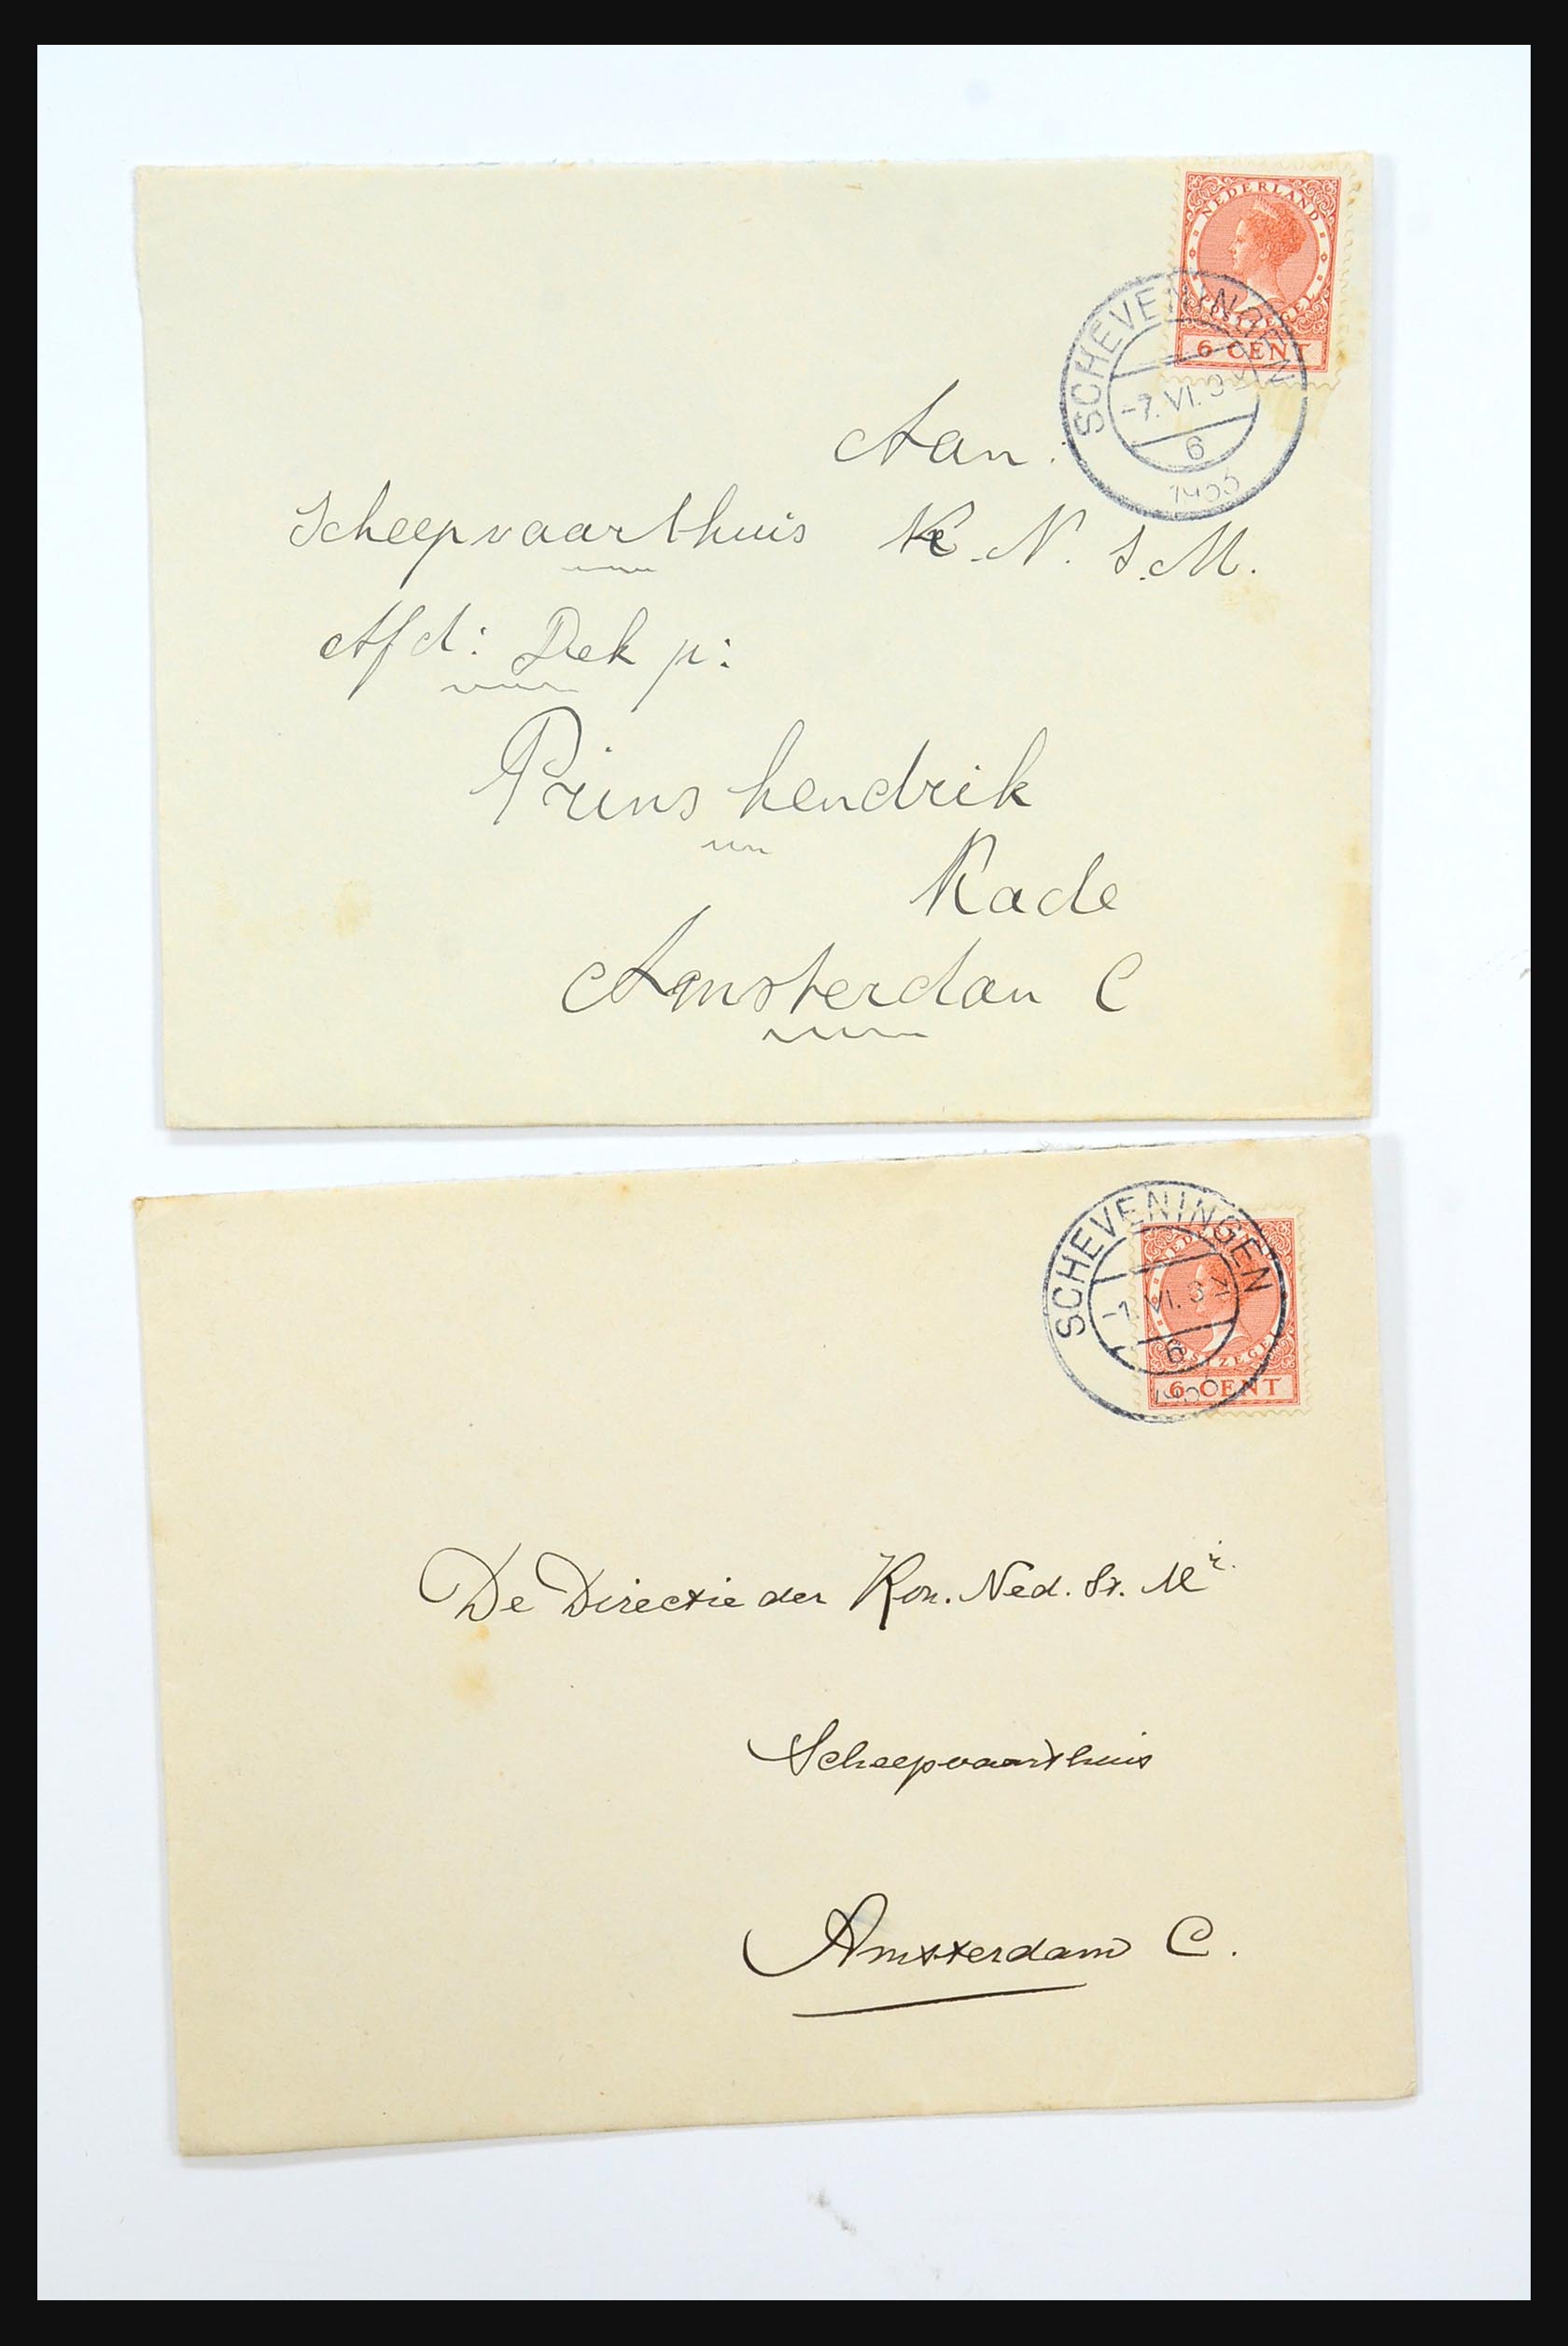 NEDERLAND
POSTZEGEL
6 CENT
SCHEVENINGEN
-7.VI.3
6
Aan:
Scheepvaarthuis K.N.S.M.
Afd: Dek p:
Prins hendrik
Kade
Amsterdam C
SCHEVENINGEN
-1.VI.3
6
POSTZEGEL
6 CENT
De Directie der Kon. Ned. St. Mij.
Scheepvaarthuis
Amsterdam C.